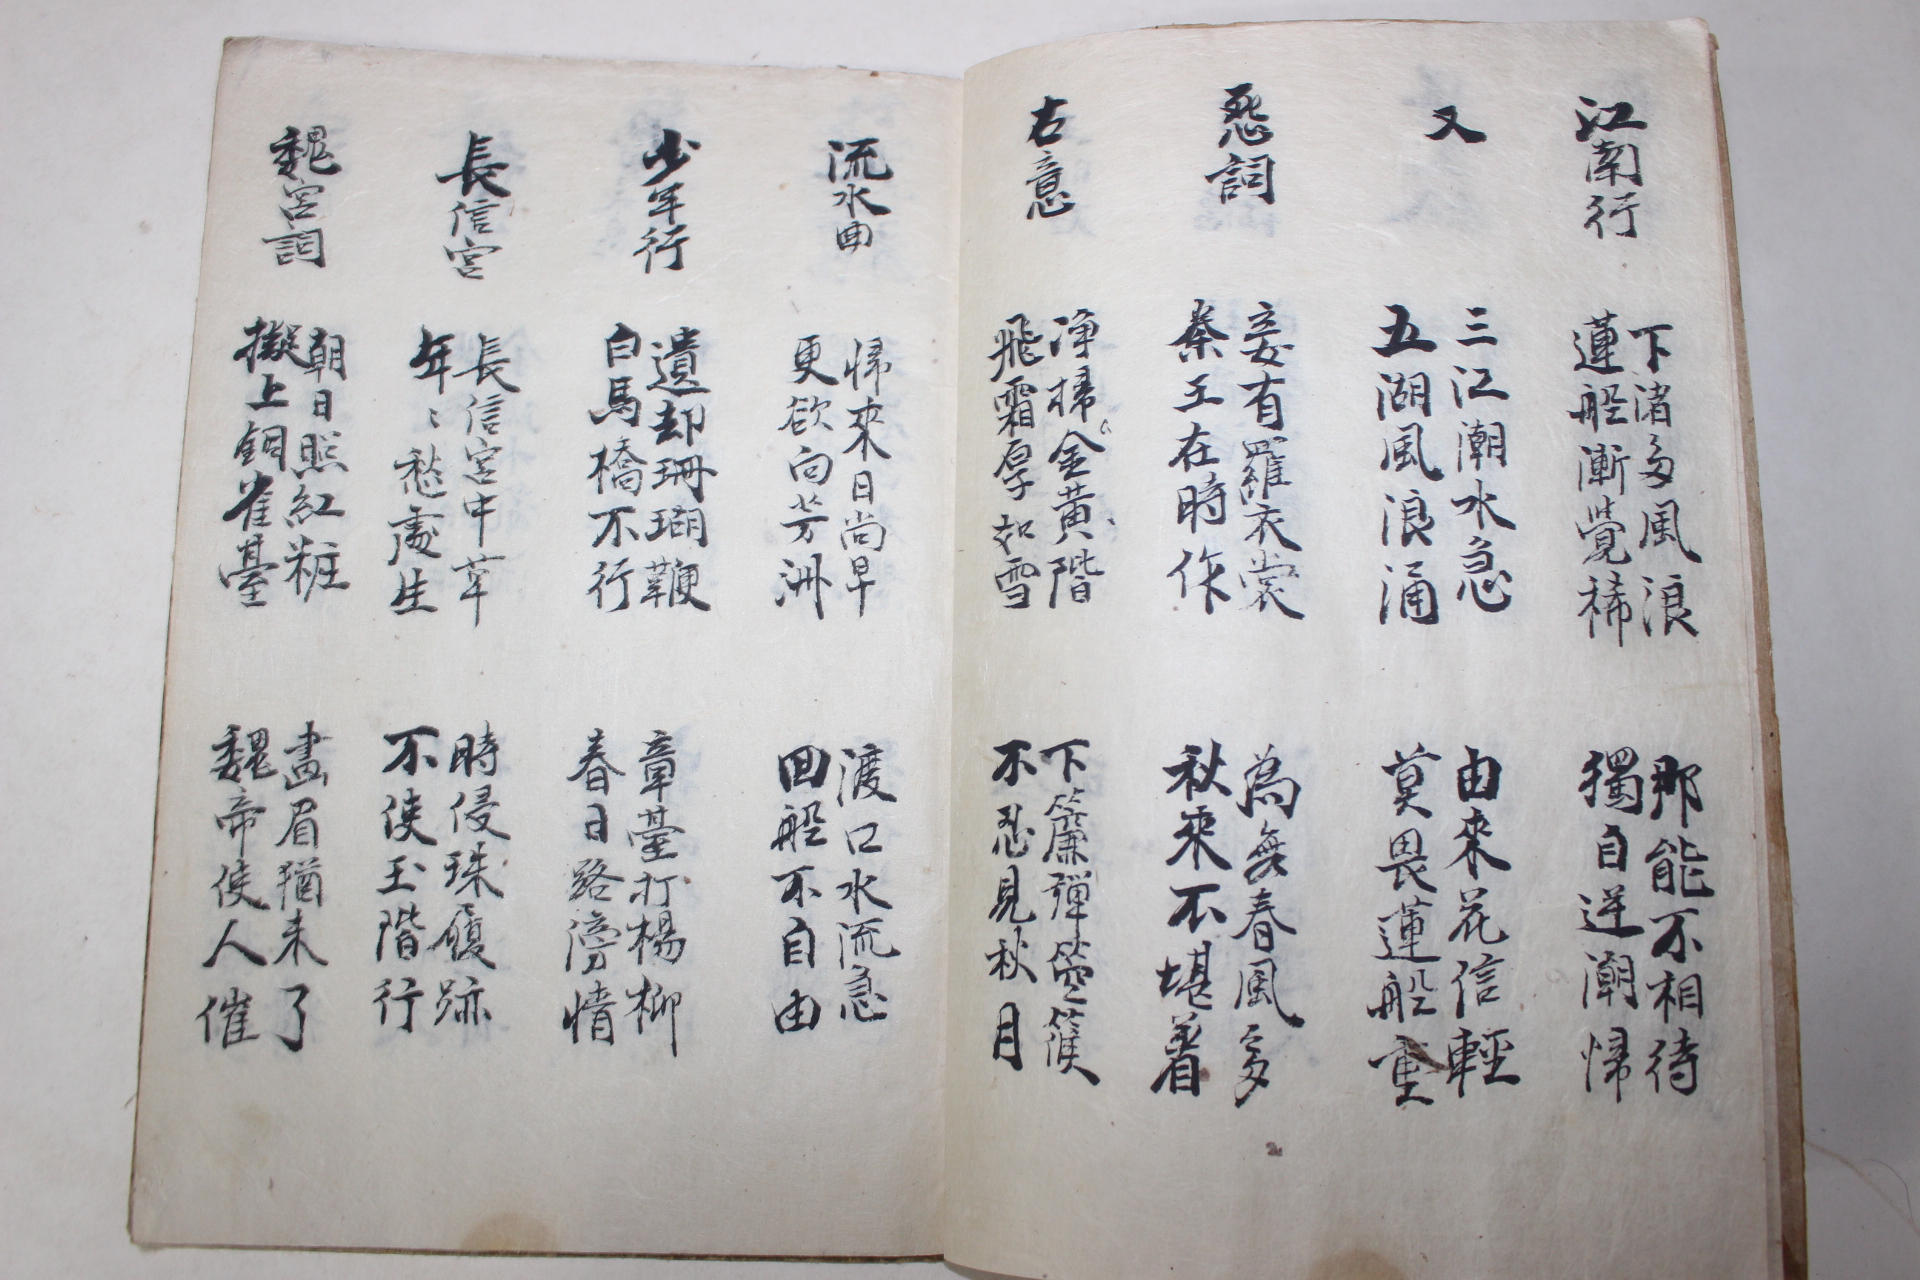 江南行
下渚多風浪
蓮船漸覺稀
那能不相待
獨自逆潮歸
又
三江潮水急
五湖風浪涌
由來花信輕
莫畏蓮船重
怨詞
妾有羅衣裳
秦王在時作
為舞春風多
秋來不堪着
古意
淨掃金黃階
飛霜厚如雪
下簾彈箜篌
不忍見秋月
流水曲
歸來日尚早
更欲向芳洲
渡口水流急
回船不自由
少年行
遺却珊瑚鞭
白馬橋不行
章臺折楊柳
春日路傍情
長信宮
長信宮中草
年〻愁處生
時侵珠履跡
不使玉階行
魏宮詞
朝日照紅粧
擬上銅雀臺
畫眉猶未了
魏帝使人催